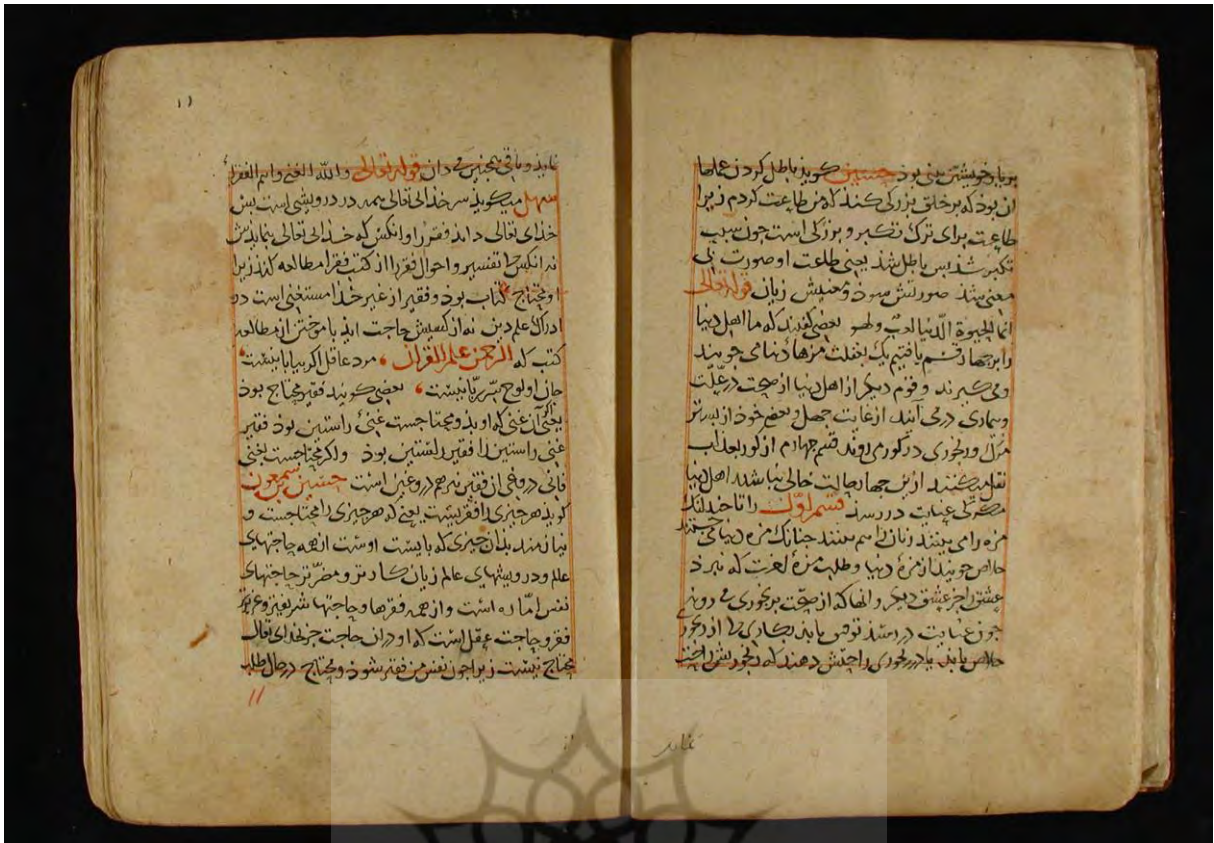 بر یاد خویشتن بینی بود حسین کوید باطل کردن عملها
آن بود که بر خلق بزرکی کند که من طاعت کردم زیرا
طاعت برای ترک تکبر و بزرکی است جون سبب
تکبر شذ بس باطل شذ یعنی طاعت او صورت بی
معنی شذ صورتش سوذ و معنیش زیان قوله تعالی
انما الحیوة الدنیا لعب ولهو بعضی کفتند که ما اهل دنیا
را بر جهار قسم یافتیم یک بغفلت مزهاء دنیا می جویند
و می کیرند و قوم دیکر از اهل دنیا از صحت در علت
و بیماری در می آیند از غایت جهل و بعضی خود از بستر
مرک و رنجوری در کور می روند قسم جهارم از کور بعذاب
نقل میکنند ازین جهار حالت خالی نباشند اهل دنیا
مکر کی عنایت در رسذ قسم اول را تا خداوند
مزه را می بینند زیان را هم بینند جنانک مزه دنیا می جستند
خلاص جویند از مزهٔ دنیا و طلب مزهٔ اخرت که نبرد
عشق را جز عشق دیکر و انها که از صحت برنجوری می روند
جون عنایت در رسد توفیق یابند بکاری کی از رنجوری
خلاص یابند یا در رنجوری راحتش دهند که رنجورتش راحت
نماید
نماید و باقی همجنین می دان قوله تعالی والله الغنی وانتم الفقراء
سهل میکوید سر خدای تعالی همه در درویشی است بس
خدای تعالی داند و فقرا و انکس که خدای تعالی بنمایذش
نه انکس کی تفسیر و احوال فقر را از کتب فقرا مطالعه کند زیرا
او محتاج کتاب بود و فقیر از غیر خدا مستغنی است در
ادراک علم دین نه از کسیش حاجت اید باموختن نه از مطالعه
کتب که الرحمن علم القران مرد عاقل اکر بیابانیست
جان او لوح سر ربانیست بعضی کویند فقیر محتاج بود
یعنی اکر آن غنی که او بذو محتاجست غنیٔ راستین بود فقیر
غنی راستین را فقیر راستین بود و اکر محتاجست بغنی
فانی دروغی ان فقیر نیز هم دروغین است حسین سمعون
کوید هر جیزی را فقریست یعنی که هر جیزی را محتاجست و
نیازمند بدان جیزی که بایست اوست از همه حاجتهای
عالم و درویشیهای عالم زیان کارتر و مضرتر حاجتهای
نفس اماره است و از همه فقرها و حاجتها شریفتر و عزیزتر
فقر و حاجت عقل است که او در ان حاجت جز بخدای تعالی
محتاج نیست زیرا جون نفس من فقیر شوذ و محتاج در حال طلب
۱۱
11